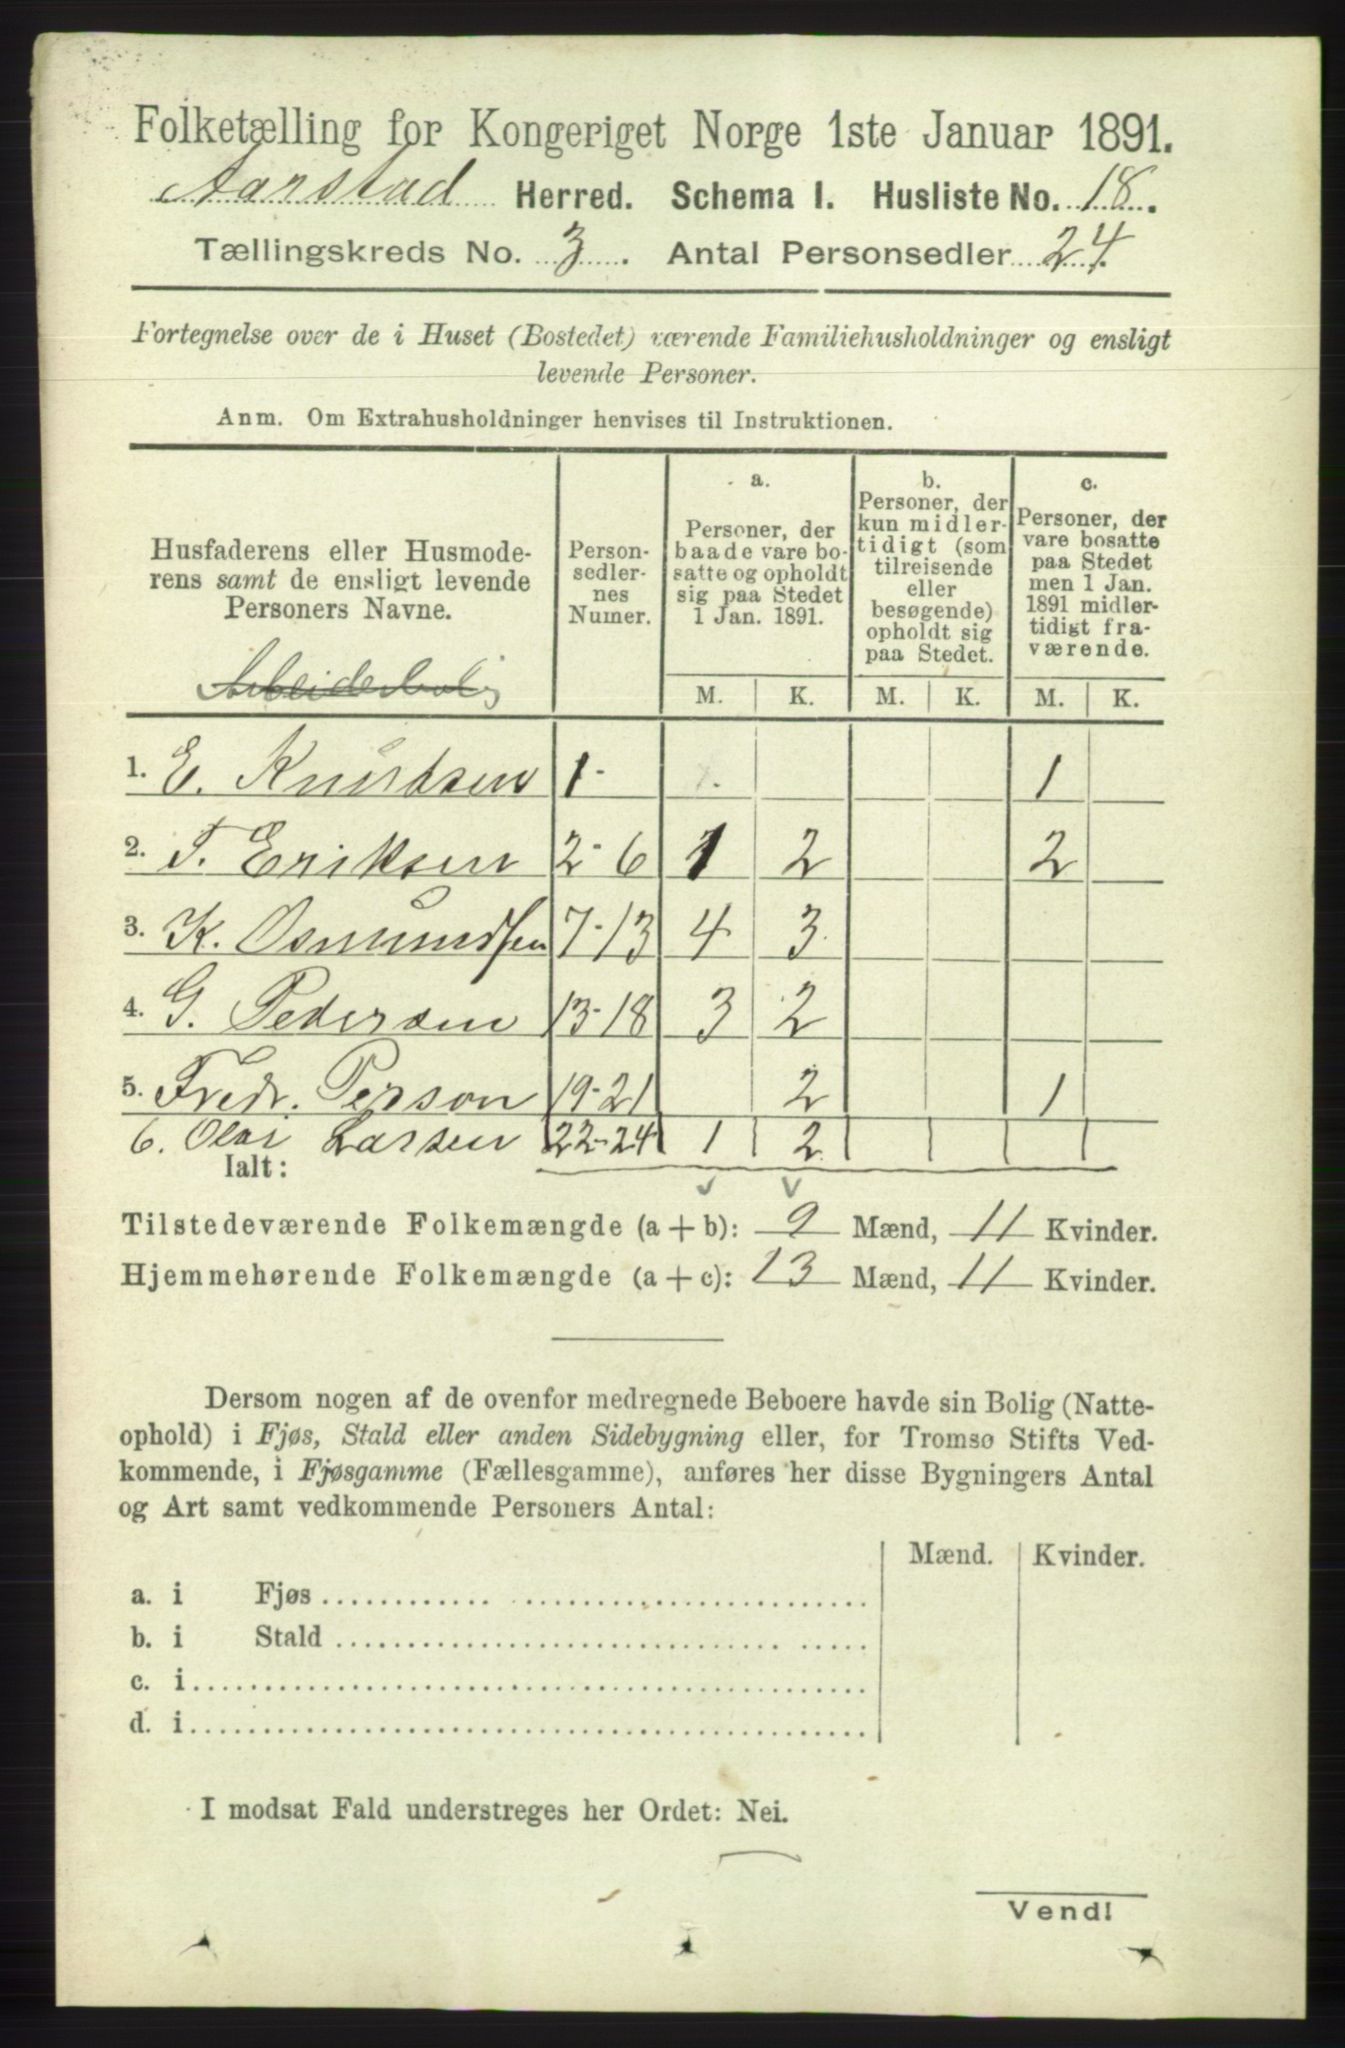 Folketælling for Kongeriget Norge 1ste Januar 1891.
Aarstad Herred. Schema I. Husliste No. 18.
Tællingskreds No. 3. Antal Personsedler 24.
Fortegnelse over de i Huset (Bostedet) værende Familiehusholdninger og ensligt
levende Personer.
Anm. Om Extrahusholdninger henvises til Instruktionen.
Husfaderens eller Husmode-
rens samt de ensligt levende
Personers Navne.
Arbeiderbolig
Person-
sedler-
nes
Numer.
a.
Personer, der
baade vare bo-
satte og opholdt
sig paa Stedet
1 Jan. 1891.
b.
Personer, der
kun midler-
tidigt (som
tilreisende
eller
besøgende)
opholdt sig
paa Stedet.
c.
Personer, der
vare bosatte
paa Stedet
men 1 Jan.
1891 midler-
tidigt fra-
værende.
M. K. M. K. M. K.
1. E. Knudtsen 1- 1
2. T. Eriksen 2-6 1 2 2
3. K. Osmundsen 7-13 4 3
4. G. Pedersen 13-18 3 2
5. Fredr. Person 19-21 2 1
6. Olai Larsen 22-24 1 2
Ialt:
Tilstedeværende Folkemængde (a + b): 9 Mænd, 11 Kvinder.
Hjemmehørende Folkemængde (a + c): 13 Mænd, 11 Kvinder.
Dersom nogen af de ovenfor medregnede Beboere havde sin Bolig (Natte-
ophold) i Fjøs, Stald eller anden Sidebygning eller, for Tromsø Stifts Ved-
kommende, i Fjøsgamme (Fællesgamme), anføres her disse Bygningers Antal
og Art samt vedkommende Personers Antal:
Mænd. Kvinder.
a. i Fjøs
b. i Stald
c. i
d. i
I modsat Fald understreges her Ordet: Nei.
Vend!